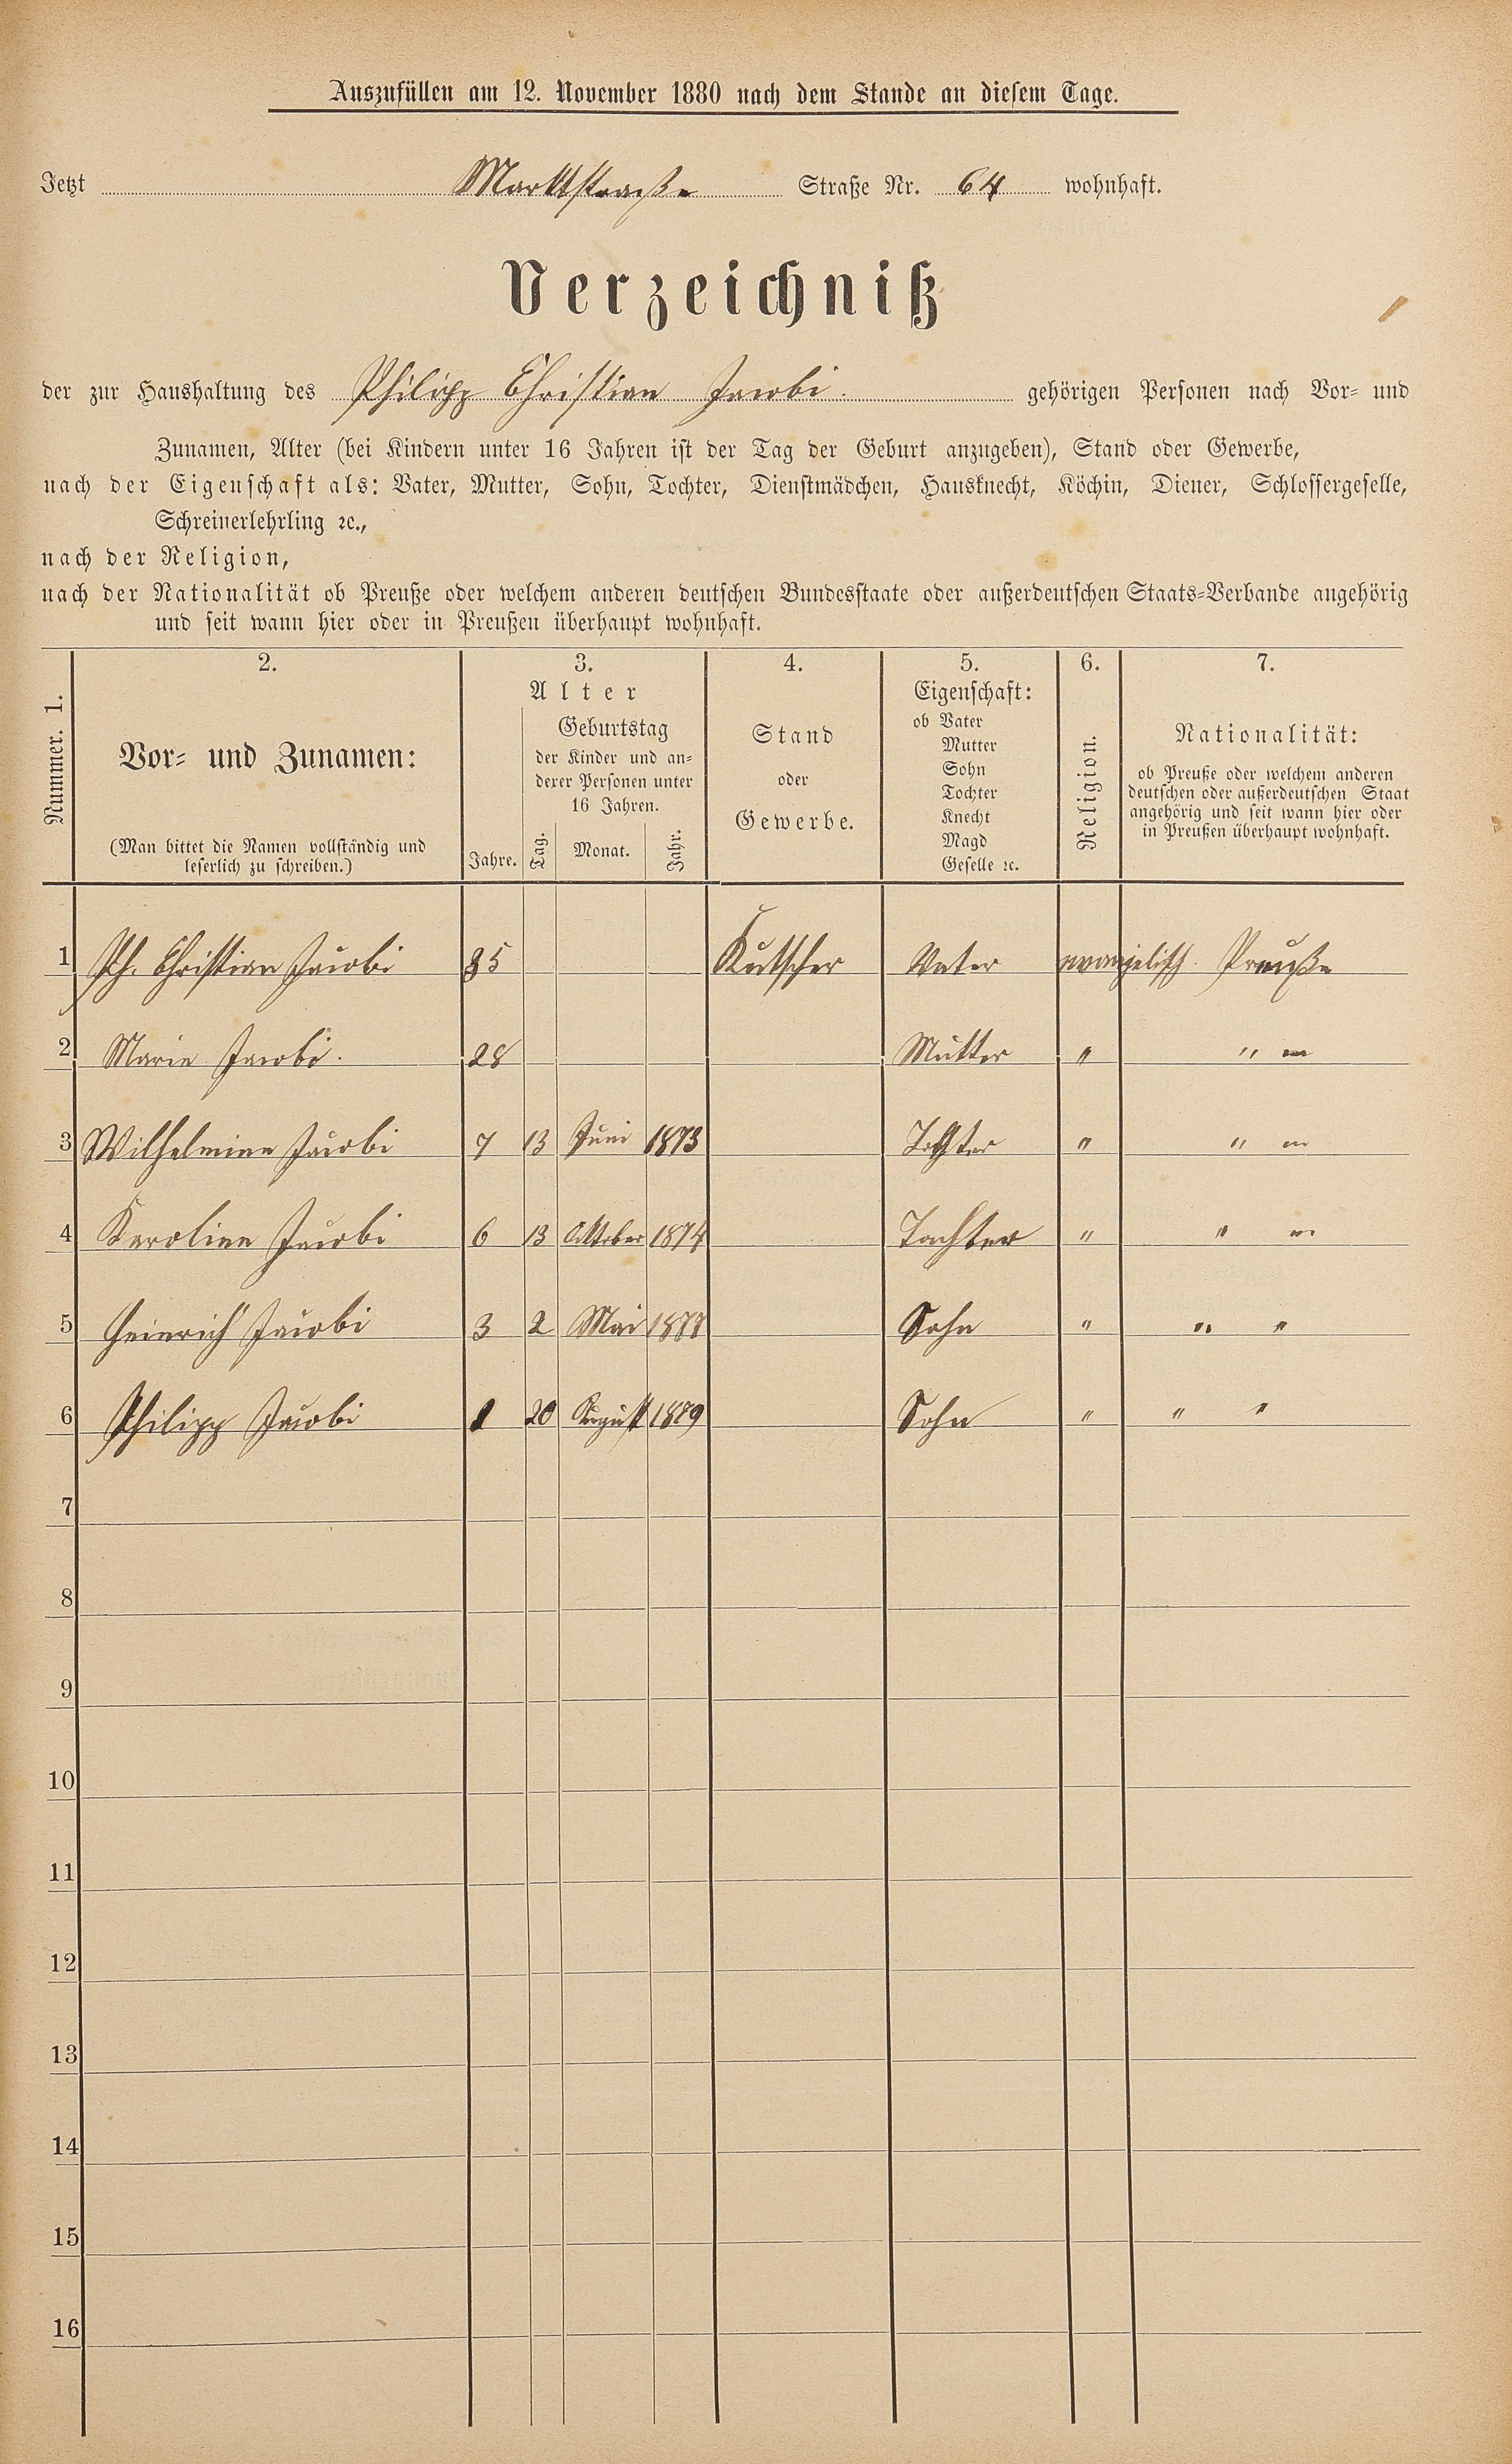 Auszufüllen am 12. November 1880 nach dem Stande an diesem Tage.
Jetzt Marktstraße Straße Nr. 64 wohnhaft.
Verzeichniß
der zur Haushaltung des Philipp Christian Jacobi. gehörigen Personen nach Vor- und
Zunamen, Alter (bei Kindern unter 16 Jahren ist der Tag der Geburt anzugeben), Stand oder Gewerbe,
nach der Eigenschaft als: Vater, Mutter, Sohn, Tochter, Dienstmädchen, Hausknecht, Köchin, Diener, Schlossergeselle,
Schreinerlehrling ꝛc.,
nach der Religion,
nach der Nationalität ob Preuße oder welchem anderen deutschen Bundesstaate oder außerdeutschen Staats-Verbande angehörig
und seit wann hier oder in Preußen überhaupt wohnhaft.
Nummer. 1.
2.
Vor- und Zunamen:
(Man bittet die Namen vollständig und
leserlich zu schreiben.)
3.
Alter
Jahre.
Geburtstag
der Kinder und an-
derer Personen unter
16 Jahren.
Tag. Monat. Jahr.
4.
Stand
oder
Gewerbe.
5.
Eigenschaft:
ob Vater
Mutter
Sohn
Tochter
Knecht
Magd
Geselle ꝛc.
6.
Religion.
7.
Nationalität:
ob Preuße oder welchem anderen
deutschen oder außerdeutschen Staat
angehörig und seit wann hier oder
in Preußen überhaupt wohnhaft.
1 Ph. Christian Jacobi 35 Kutscher Vater evangelisch. Preuße
2 Marie Jacobi. 28 Mutter " " "
3 Wilhelmine Jacobi 7 13 Juni 1873 Tochter " " "
4 Karoline Jacobi 6 13 Oktober 1874 Tochter " " "
5 Heinrich Jacobi 3 2 Mai 1877 Sohn " " "
6 Philipp Jacobi 1 20 August 1879 Sohn " " "
7
8
9
10
11
12
13
14
15
16